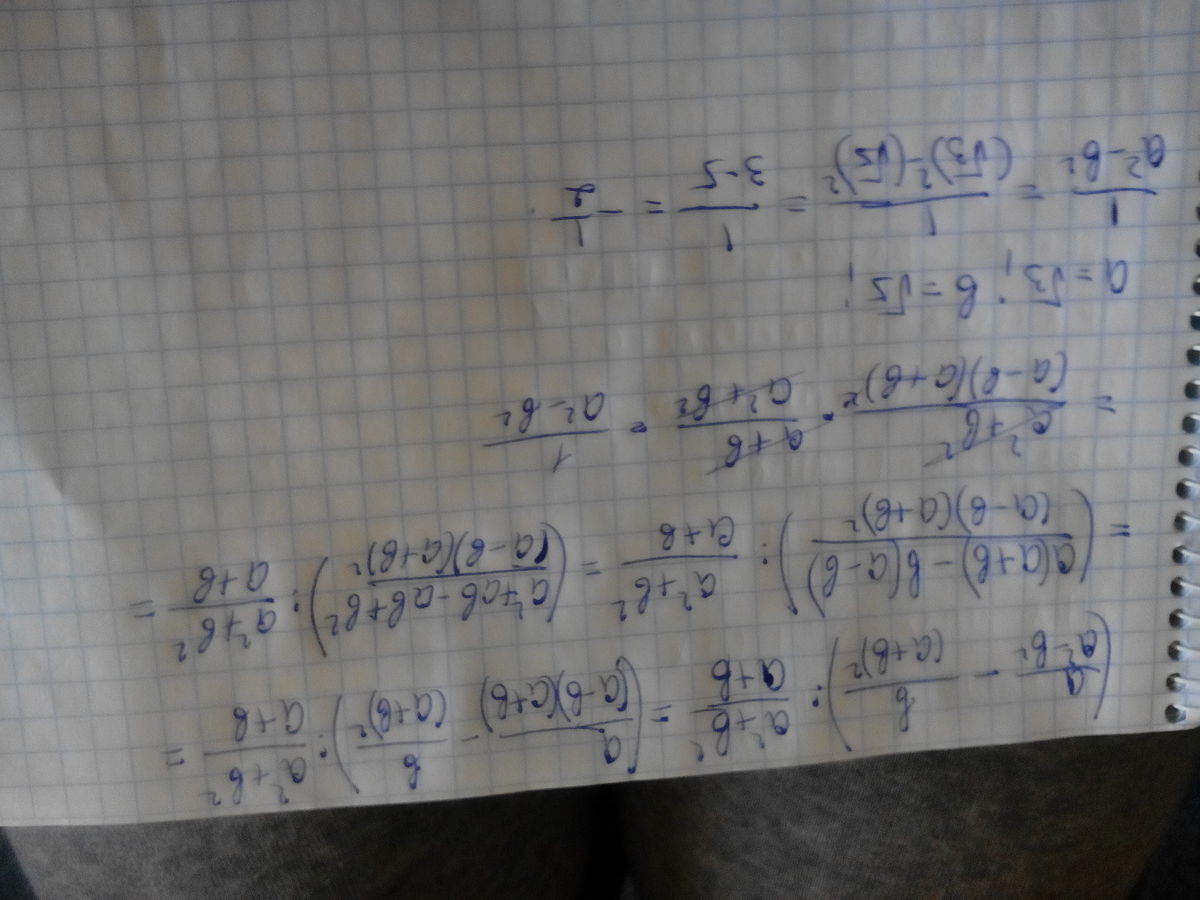 (a/(a²-b²) - b/(a+b)²) : (a²+b²)/(a+b) = (a/((a-b)(a+b)) - b/(a+b)²) : (a²+b²)/(a+b) =
= ((a(a+b) - b(a-b))/((a-b)(a+b)²)) : (a²+b²)/(a+b) = ((a²+ab-ab+b²)/((a-b)(a+b)²)) : (a²+b²)/(a+b) =
= (a²+b²)/((a-b)(a+b)²) · (a+b)/(a²+b²) = 1/(a²-b²)
a = √3; b = √5;
1/(a²-b²) = 1/((√3)²-(√5)²) = 1/(3-5) = -1/2.